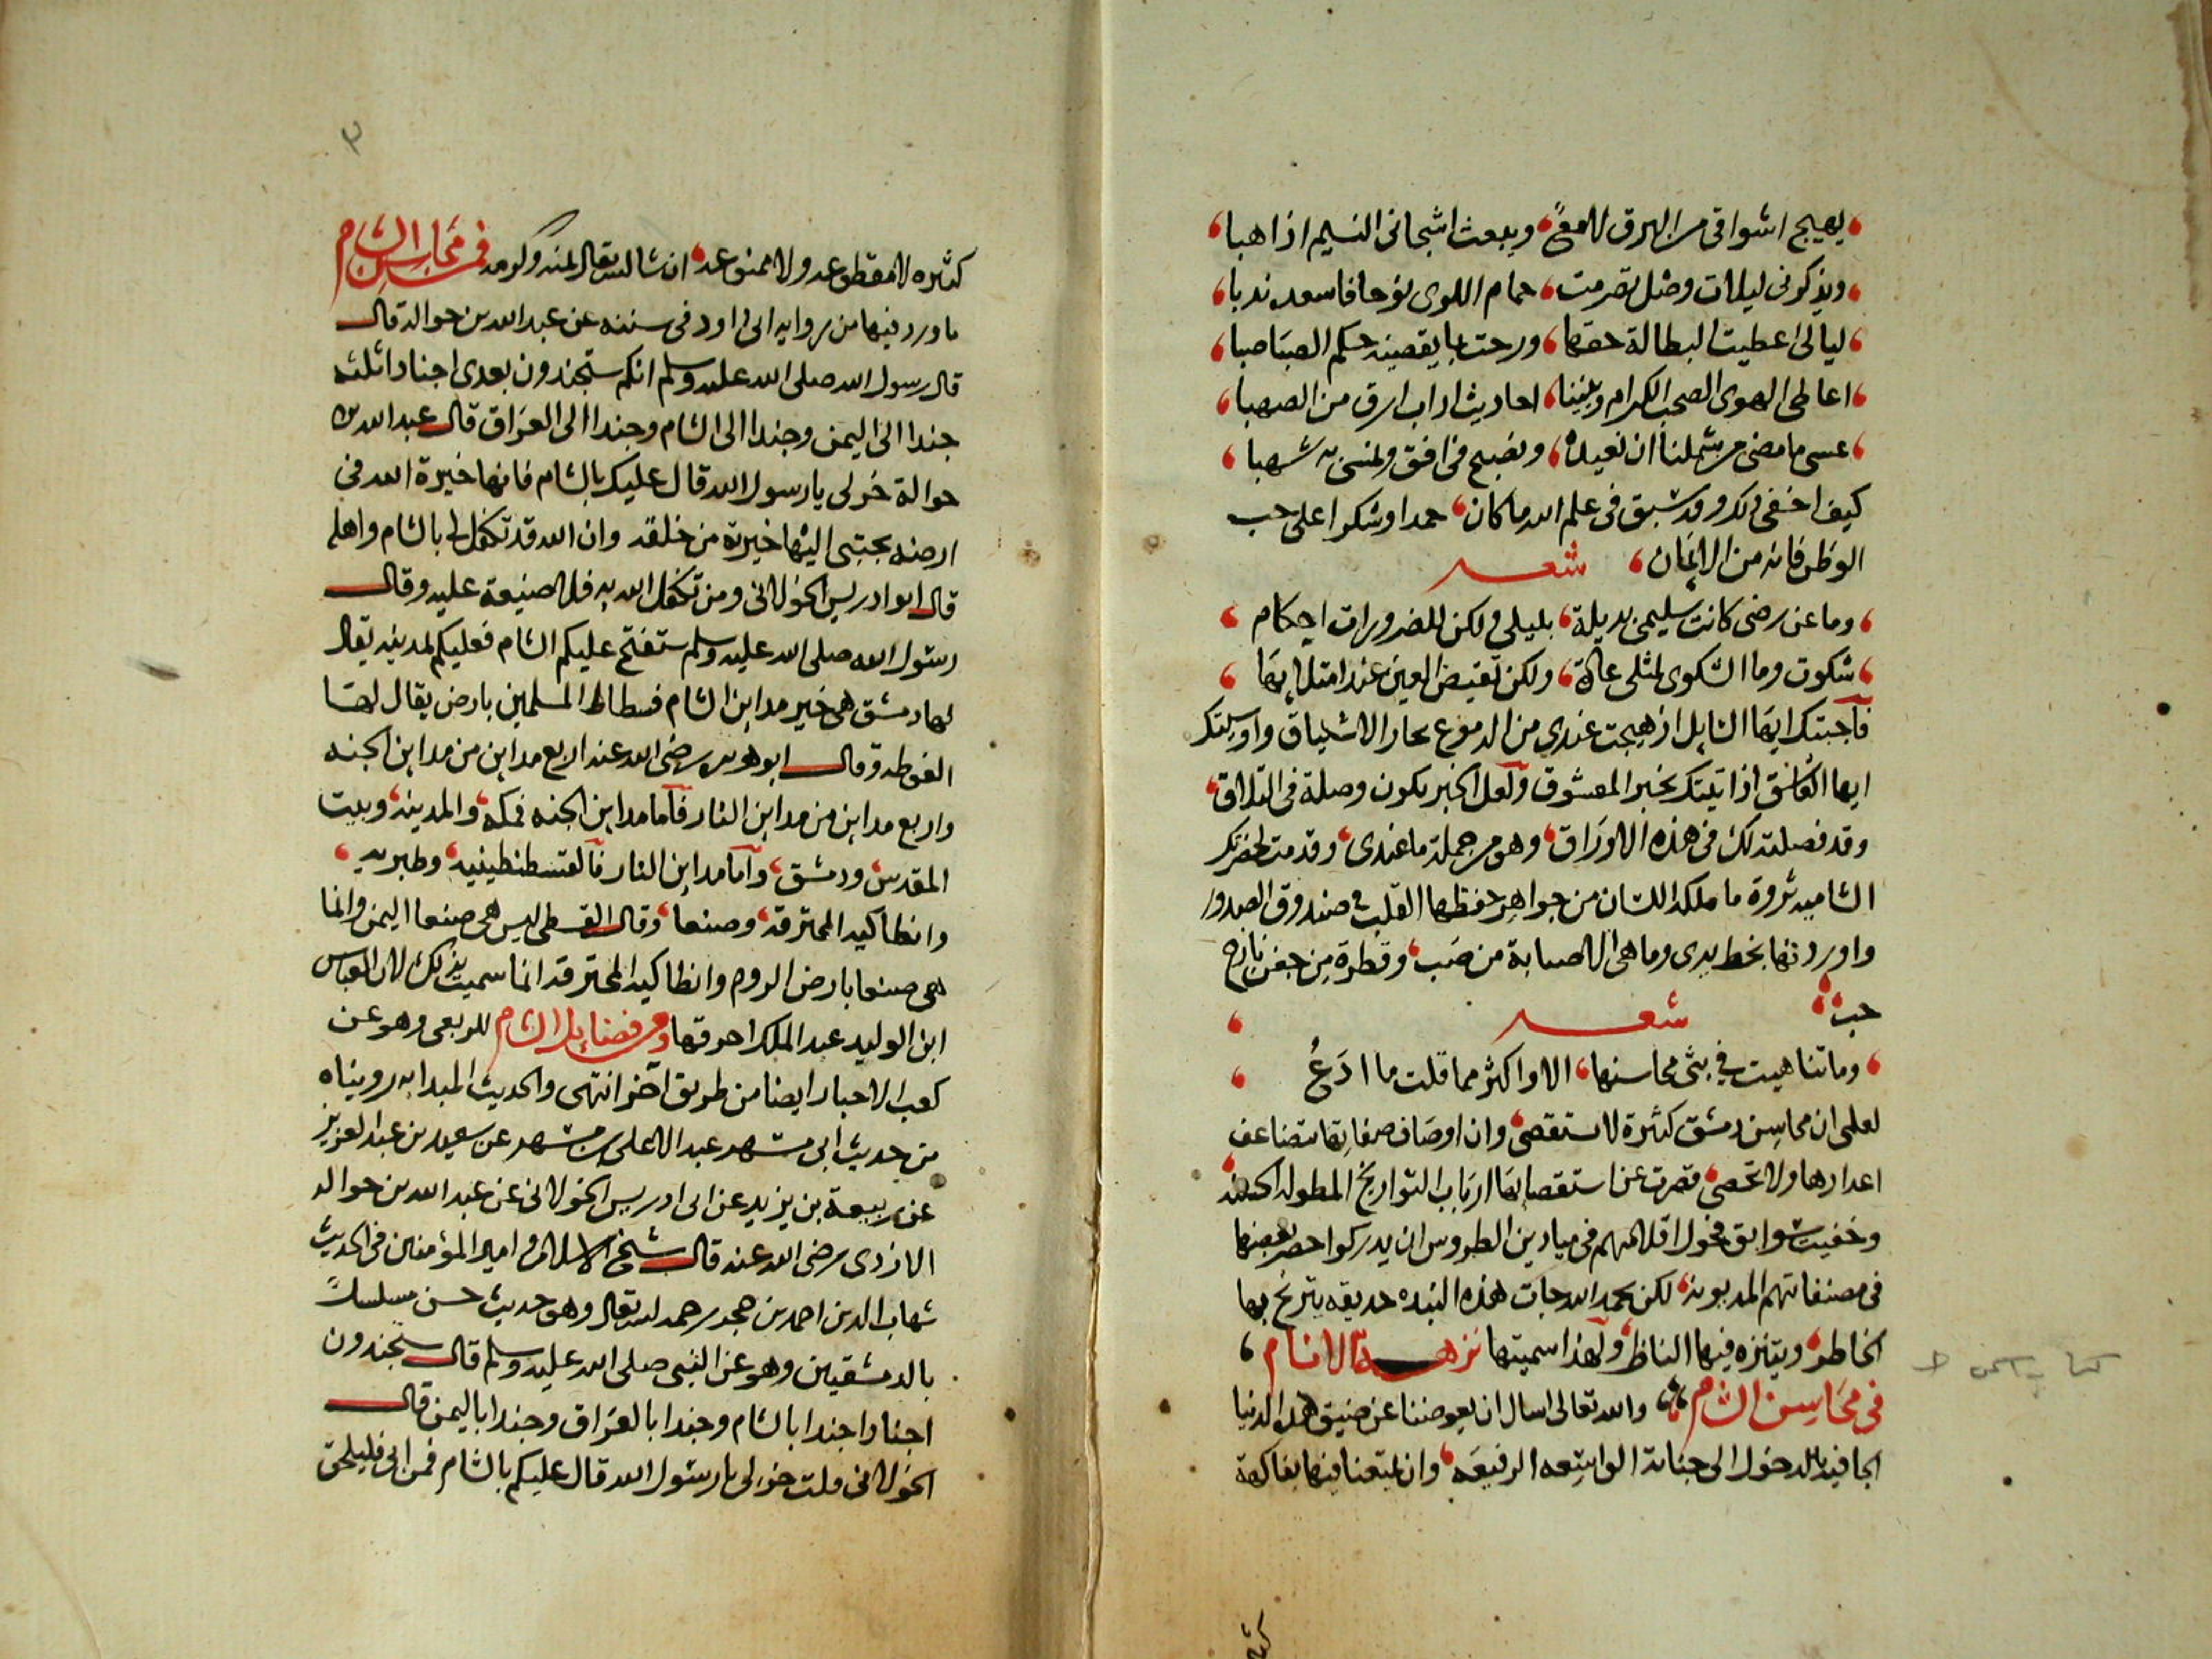 يهيج اشواقى من البرق لامع، ويبعث اشجانى النسيم اذا هبا،
ويذكرنى ليلات وصل تصرمت، حمام اللوى نوحا فاسعده ندبا،
ليالى اعطيت البطالة حقها، ورحت بما يقضيه حكم الصبا صبا،
اعاطى الهوى الصحب الكرام وبيننا، احاديث اداب ارق من الصهبا،
عسى ما مضى من شملنا ان نعيده، ونصبح فى افق ونمسى به شهبا،
كيف اخفى ذلك وقد سبق فى علم الله ما كان، حمدا وشكرا على حب
الوطن فانه من الايمان، شعر
وما عن رضى كانت سليمى بديلة، بليلى ولكن للضرورات احكام،
شكوت وما الشكوى لمثلى عادة، ولكن تفيض العين عند امتلايها،
فاجبتك ايها السايل اذ هيجت عندى من الدموع بحار الاشتياق واوسيتك
ايها العاشق اذ اتيتك بخبر المعشوق ولعل الخبر يكون وصلة فى التلاق،
وقد فصلت لك فى هذه الاوراق، وهو من جملة ما عندى، وقدمت لحضرتك
الشاميه ثروة ما ملكه اللسان من جواهر حفظها القلب فى صندوق الصدور
واوردتها بخط يدى وما هى الا صبابة من صب، وقطرة من جفن نازح
حب، شعر،
وما تناهيت فى بثى محاسنها، الا واكثر مما قلت ما ادع،
لعلمى ان محاسن دمشق كثيرة لا تستقصى، وان اوصاف صفاتها تتضاعف
اعدادها ولا تحصى، قصرت عن استقصايها ارباب التواريخ المطوله
وخفيت سوابق فحول اقلامهم فى ميادين الطروس ان يدركوا حصر بعضها
فى مصنفاتهم المدبونة، لكن بحمد الله جات هذه النبذه حديقه يترنح بها
الخاطر، ويتنزه فيها الناظر، ولهذا سميتها نزهة الانام،
فى محاسن الشام، والله تعالى اسال ان يعوضنا عن ضيق هذه الدنيا
الجافيه بالدخول الى جنانة الواسعه الرفيعه، وان يمتعنا فيها بفاكهة
٣
كثيره لا مقطوعه ولا ممنوعه، ان شا الله تعالى بمنه وكرمه فى محاسن الشام
ما ورد فيها من روايه ابى داود فى سننه عن عبد الله بن حواله قال
قال رسول الله صلى الله عليه وسلم انكم ستجندون بعدى اجنادا ثلثه
جندا الى اليمن وجندا الى الشام وجندا الى العراق قال عبد الله بن
حوالة خر لى يا رسول الله قال عليك بالشام فانها خيرة الله فى
ارضه يجتبى اليها خيرته من خلقه وان الله قد تكفل لى بالشام واهله
قال ابو ادريس الخولانى ومن تكفل الله به فلا ضيعة عليه وقال
رسول الله صلى الله عليه وسلم ستفتح عليكم الشام فعليكم بمدينه يقال
لها دمشق هى خير مداين الشام فسطاط المسلمين بارض يقال لها
الغوطه وقال ابو هريره رضى الله عنه اربع مداين من مداين الجنه
واربع مداين من مداين النار فاما مداين الجنه فمكه، والمدينه، وبيت
المقدس، ودمشق، واما مداين النار فالقسطنطينيه، وطبريه،
وانطاكيه المحترقه، وصنعا، وقال القسطى ليس هى صنعا اليمن وانما
هى صنعا بارض الروم وانطاكيه المحترقه انما سميت بذلك لان العباس
ابن الوليد عبد الملك احرقها ومن فضايل الشام للربعى وهو عن
كعب الاحبار ايضا من طريق اخر انتهى والحديث المبدا به رويناه
من حديث ابى مسهر عبد الاعلى بن مسهر عن سعيد بن عبد العزيز
عن ربيعة بن يزيد عن ابى ادريس الخولانى عن عبد الله بن حواله
الازدى رضى الله عنه قال شيخ الاسلام وامير المؤمنين فى الحديث
شهاب الدين احمد بن حجر رحمه الله تعالى وهو حديث حسن مسلسلا
بالدمشقيين وهو عن النبى صلى الله عليه وسلم قال ستجندون
اجنادا جندا بالشام وجندا بالعراق وجندا باليمن قال
الخولانى قلت خر لى يا رسول الله قال عليكم بالشام فمن ابى فليلحق